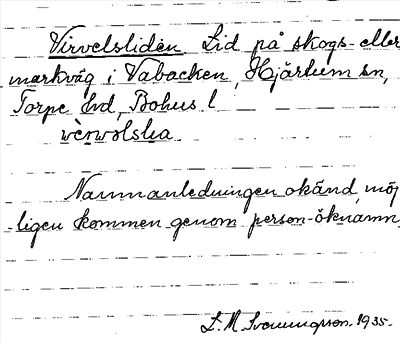 Virvelsliden Lid på skogs- eller
markväg i Vabacken, Hjärtum sn,
Torpe hd, Bohus l
Namnanledningen okänd, möj
-ligen kommen genom person-öknamn.
L. M. Svenungsson. 1935.